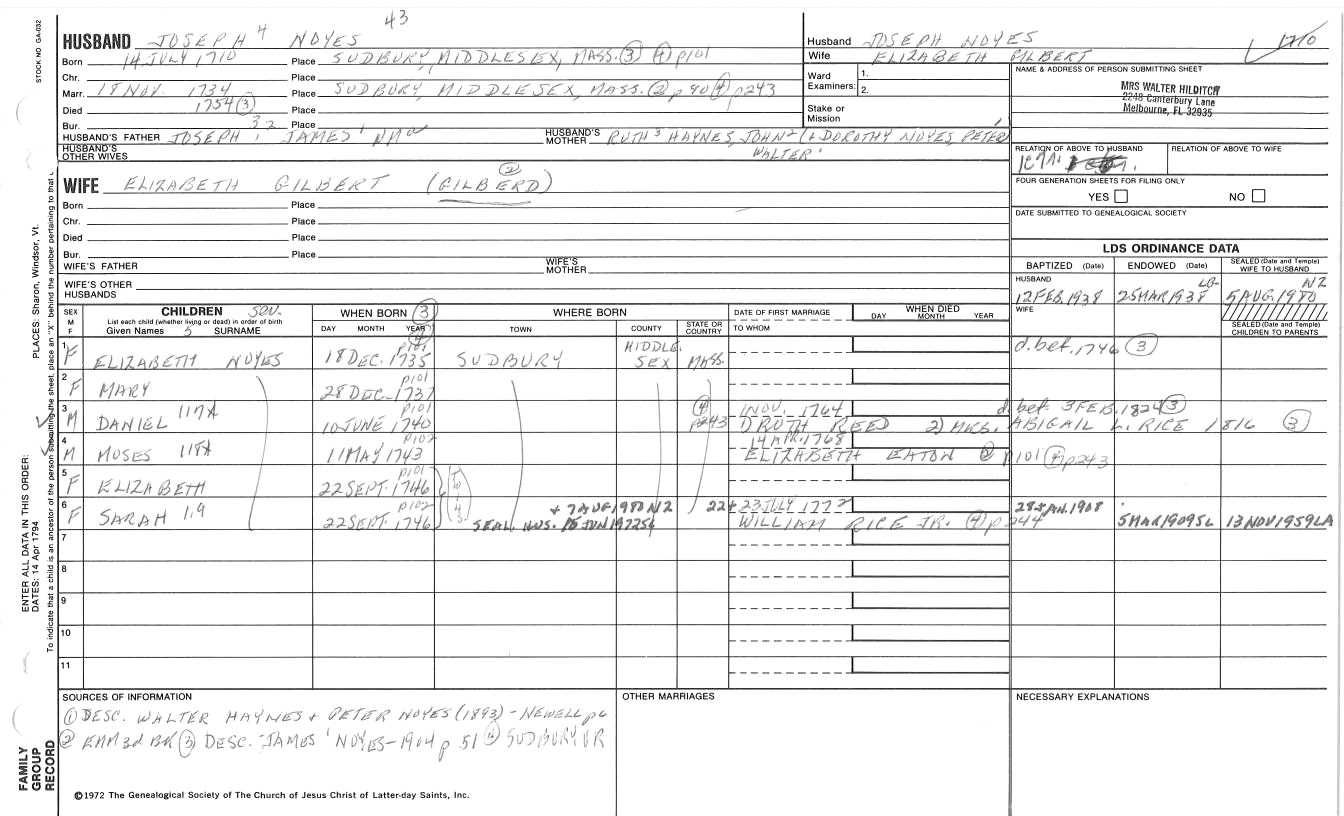 43
STOCK NO GA-032
HUSBAND JOSEPH 4 NOYES
Born 14 JULY 1710 Place SUDBURY, MIDDLESEX, MASS. (3) (4) p101
Chr. Place
Marr. 18 NOV. 1734 Place SUDBURY, MIDDLESEX, MASS. (2) p90 (4) p243
Died 1754 (3) Place
Bur. Place
HUSBAND'S FATHER JOSEPH 3, JAMES 2
HUSBAND'S MOTHER RUTH 3 HAYNES, JOHN 2 (& DOROTHY NOYES, PETER 1
WALTER 1
HUSBAND'S OTHER WIVES
Husband JOSEPH NOYES
Wife ELIZABETH GILBERT
1710
Ward Examiners: 1.
2.
Stake or Mission
NAME & ADDRESS OF PERSON SUBMITTING SHEET
MRS WALTER HILDITCH
2248 Canterbury Lane
Melbourne, FL 32935
RELATION OF ABOVE TO HUSBAND
RELATION OF ABOVE TO WIFE
FOUR GENERATION SHEETS FOR FILING ONLY
YES NO
DATE SUBMITTED TO GENEALOGICAL SOCIETY
WIFE ELIZABETH GILBERT (GILBERD) (2)
Born Place
Chr. Place
Died Place
Bur. Place
WIFE'S FATHER
WIFE'S MOTHER
WIFE'S OTHER HUSBANDS
LDS ORDINANCE DATA
BAPTIZED (Date) ENDOWED (Date) SEALED (Date and Temple) WIFE TO HUSBAND
HUSBAND LG- NZ
12 FEB. 1938 25 MAR 1938 5 AUG. 1980
WIFE
SEALED (Date and Temple) CHILDREN TO PARENTS
SEX M F
CHILDREN
List each child (whether living or dead) in order of birth
Given Names 5 SURNAME
WHEN BORN (3) (4)
DAY MONTH YEAR
WHERE BORN
TOWN COUNTY STATE OR COUNTRY
DATE OF FIRST MARRIAGE
TO WHOM
WHEN DIED
DAY MONTH YEAR
1 F ELIZABETH NOYES 18 DEC. 1735 p101 SUDBURY MIDDLESEX MASS. d. bef. 1746 (3)
2 F MARY 28 DEC. 1737 p101
3 M DANIEL 117A 10 JUNE 1740 p101 (4) p243 NOV. 1764 d. bef. 3 FEB. 1824 (3)
1) RUTH REED 2) MRS. ABIGAIL L. RICE 1816 (3)
4 M MOSES 118A 11 MAY 1743 p102 14 APR. 1768
ELIZABETH EATON (2) p101 (4) p243
5 F ELIZABETH 22 SEPT. 1746 p101 TWINS
6 F SARAH 119 22 SEPT. 1746 p102 + 7 AUG 1980 NZ 22 + 23 JULY 1772 28 JAN. 1908
SEAL. HUS. 15 JUN 1972 SL WILLIAM RICE JR. (4) p244 5 MAR 1909 SL 13 NOV 1959 LA
7
8
9
10
11
SOURCES OF INFORMATION
(1) DESC. WALTER HAYNES + PETER NOYES (1893) - NEWELL p6
(2) EMM 3d BK (3) DESC. JAMES 1 NOYES - 1904 p 51 (4) SUDBURY VR
OTHER MARRIAGES
NECESSARY EXPLANATIONS
©1972 The Genealogical Society of The Church of Jesus Christ of Latter-day Saints, Inc.
FAMILY GROUP RECORD
ENTER ALL DATA IN THIS ORDER:
DATES: 14 Apr 1794
PLACES: Sharon, Windsor, Vt.
To indicate that a child is an ancestor of the person submitting the sheet, place an "X" behind the number pertaining to that